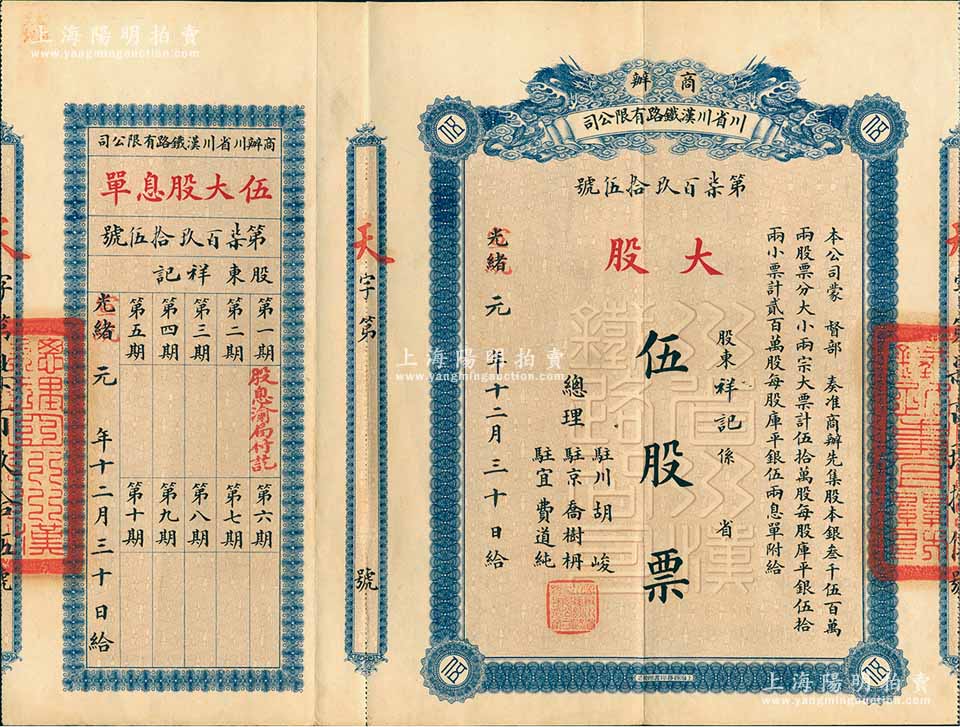 上海陽明拍賣
www.yangmingauction.com
商辦
川省川漢鐵路有限公司
第柒百玖拾伍號
大股
伍股票
本公司蒙 督部 奏准商辦先集股本銀叁千伍百萬
兩股票分大小兩宗大票計伍拾萬股每股庫平銀伍拾
兩小票計貳百萬股每股庫平銀伍兩息單附給
股東祥記係 省
總理
駐川胡峻
駐京喬樹枬
駐宜費道純
光緒元年十二月三十日給
天字第 號
商辦川省川漢鐵路有限公司
伍大股息單
第柒百玖拾伍號
股東祥記
第一期
第二期
第三期
第四期
第五期
股息渝局付訖
第六期
第七期
第八期
第九期
第十期
光緒元年十二月三十日給
天字第柒百玖拾伍號
上海陽明拍賣
www.yangmingauction.com
上海陽明拍賣
www.yangmingauction.com